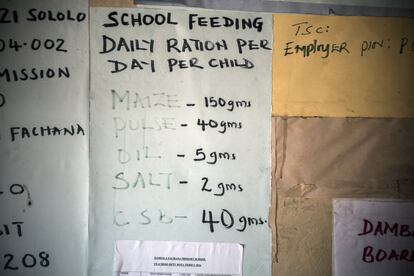 ZI SOLOLO
04.002
MISSION
FACHANA
208
SCHOOL FEEDING
DAILY RATION PER
DAY PER CHILD
MAIZE - 150gms
PULSE - 40gms
OIL - 5gms
SALT - 2gms
CSB - 40gms.
DAMBALA FACHANA PRIMARY SCHOOL
TSC:
Employer PIN: P
DAMBA
BOAR